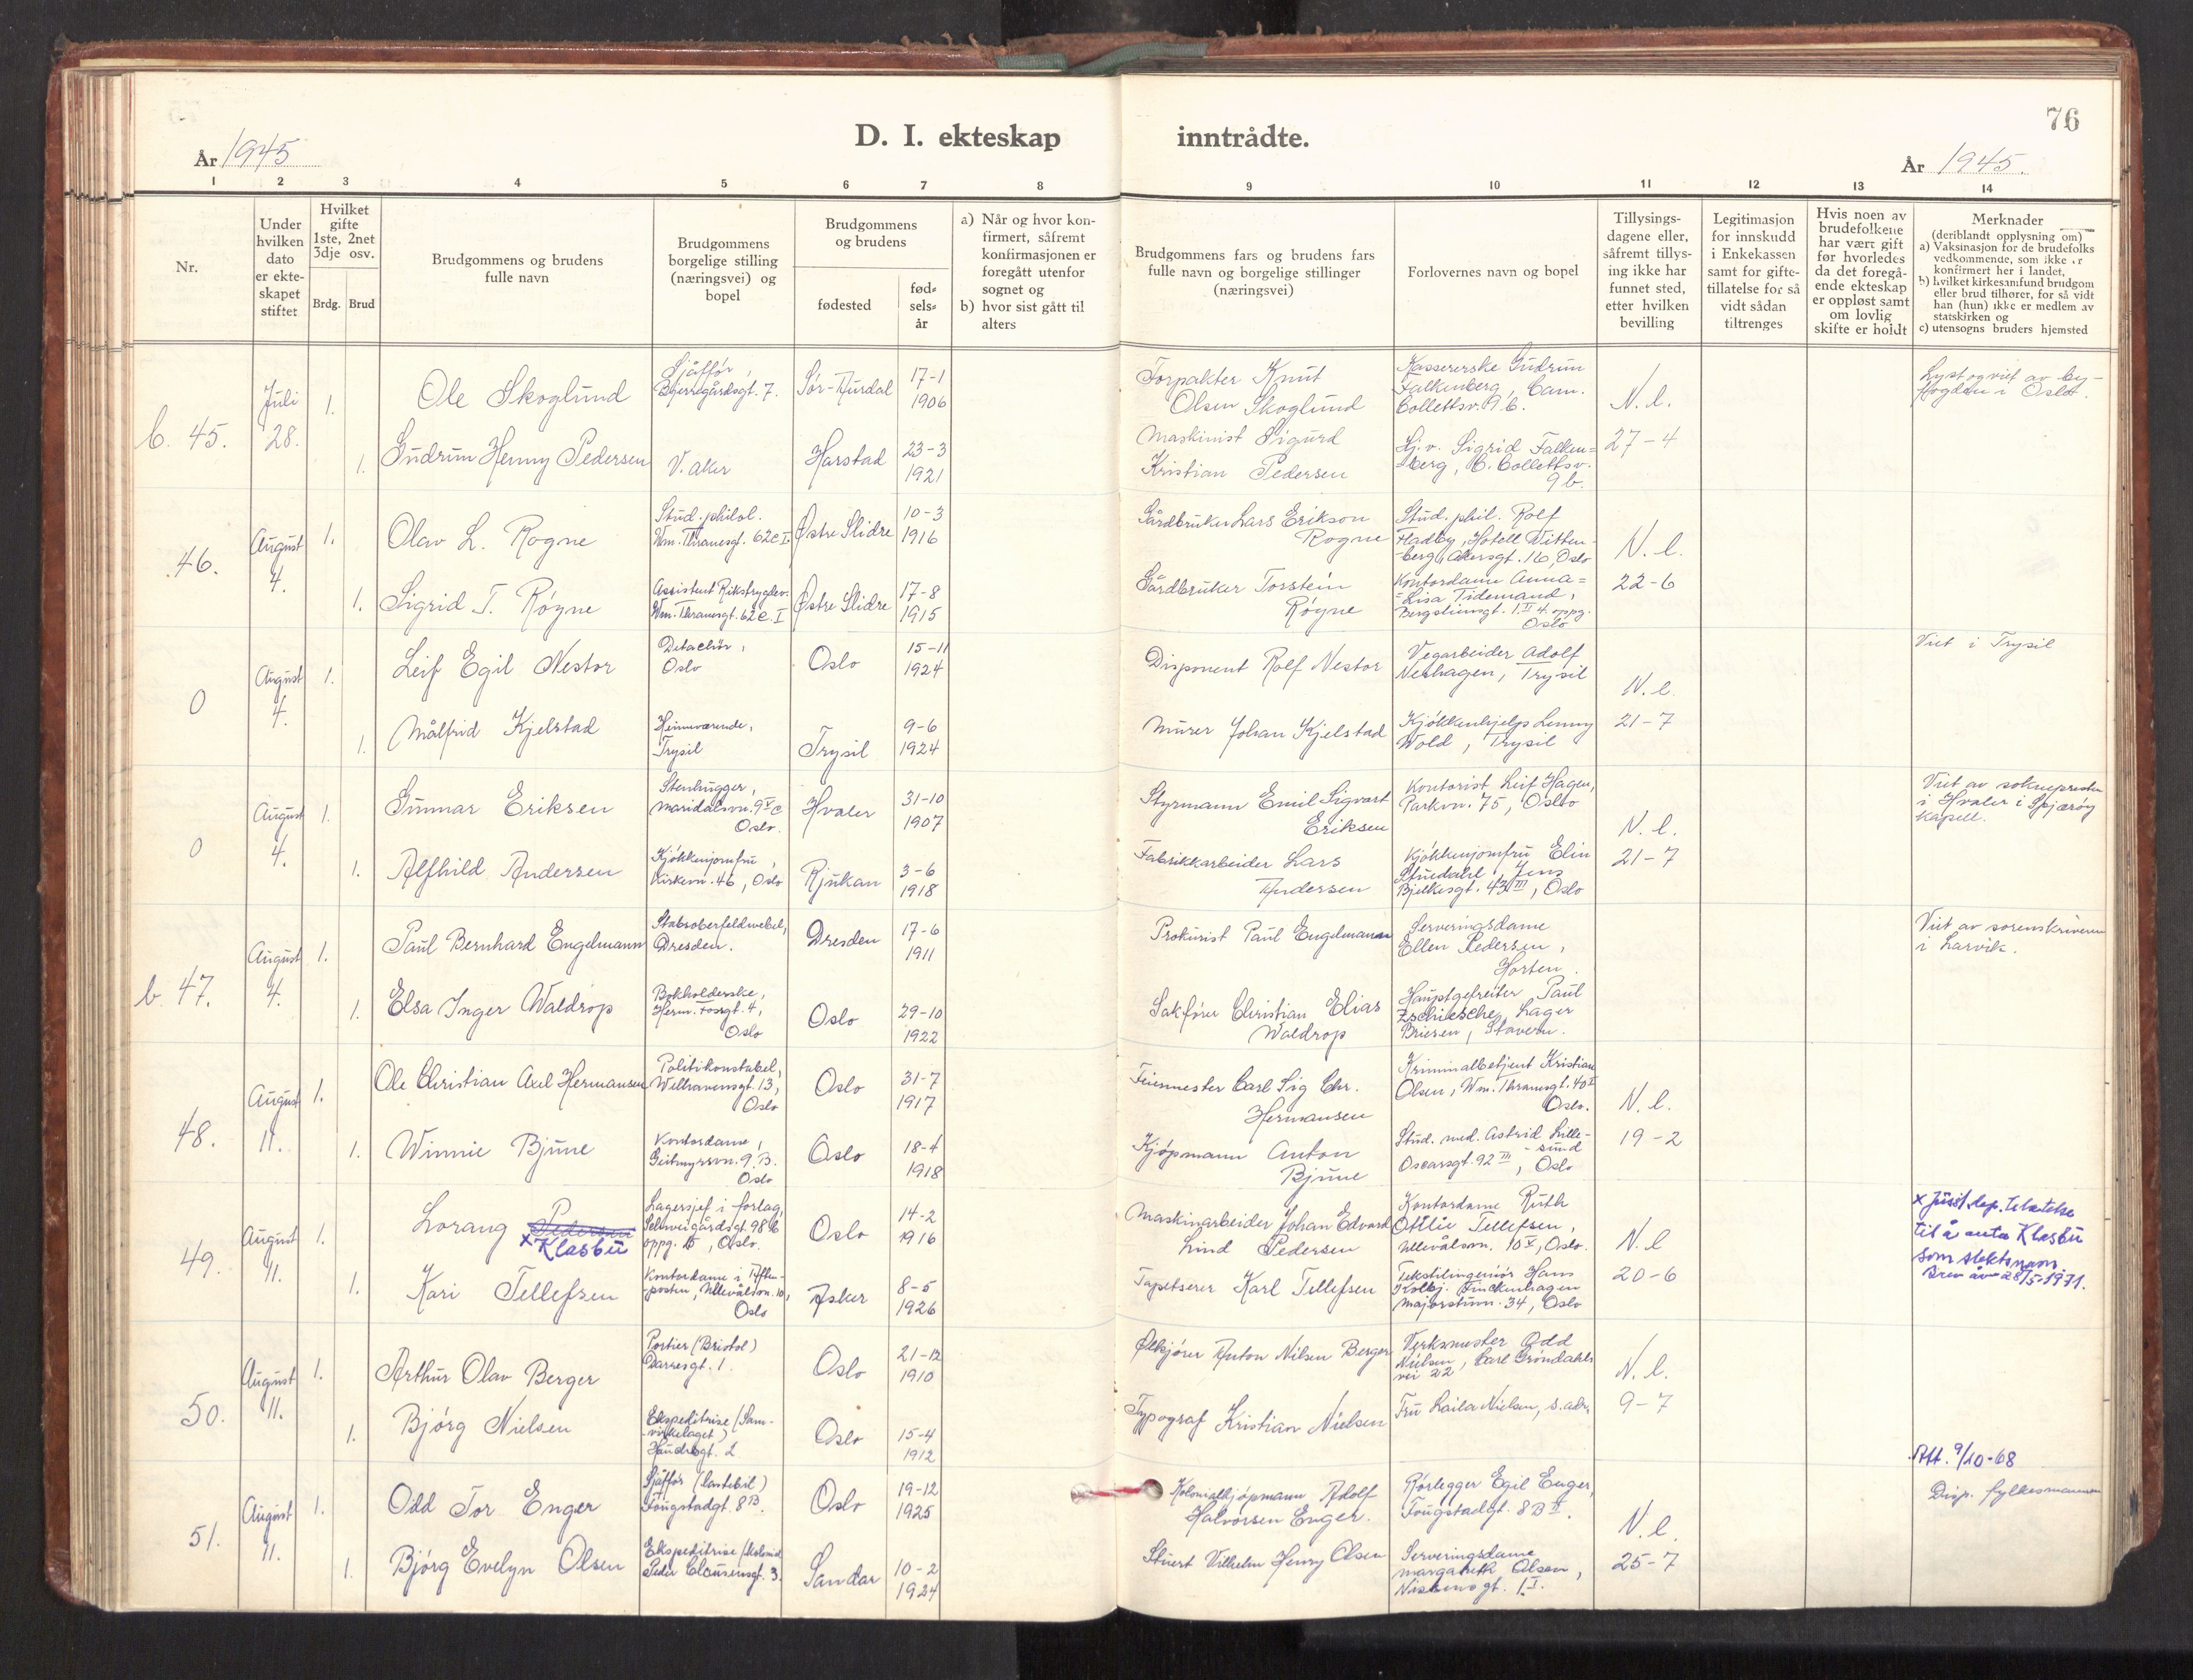 76
D. I. ekteskap inntrådte.
År 1945
År 1945.
1 2 3 4 5 6 7 8 9 10 11 12 13 14
Nr.
Under
hvilken
dato
er ekte-
skapet
stiftet
Hvilket
gifte
1ste, 2net
3dje osv.
Brdg. Brud
Brudgommens og brudens
fulle navn
Brudgommens
borgelige stilling
(næringsvei) og
bopel
Brudgommens
og brudens
fødested
fød-
sels-
år
a) Når og hvor kon-
firmert, såfremt
konfirmasjonen er
foregått utenfor
sognet og
b) hvor sist gått til
alters
Brudgommens fars og brudens fars
fulle navn og borgelige stillinger
(næringsvei)
Forlovernes navn og bopel
Tillysings-
dagene eller,
såfremt tillys-
ing ikke har
funnet sted,
etter hvilken
bevilling
Legitimasjon
for innskudd
i Enkekassen
samt for gifte-
tillatelse for så
vidt sådan
tiltrenges
Hvis noen av
brudefolkene
har vært gift
før hvorledes
da det foregå-
ende ekteskap
er oppløst samt
om lovlig
skifte er holdt
Merknader
(deriblandt opplysning om)
a) Vaksinasjon for de brudefolks
vedkommende, som ikke er
konfirmert her i landet,
b) hvilket kirkesamfund brudgom
eller brud tilhører, for så vidt
han (hun) ikke er medlem av
statskirken og
c) utensogns bruders hjemsted
b. 45.
Juli
28.
1.
Ole Skoglund
Sjåfför,
Bjerregårdsgt. 7.
Sør-Aurdal
17-1
1906
Forpakter Knut
Olsen Skoglund
Kassererske Gudrun
Falkenberg, Cam.
Collettsv. 9 b.
N.l.
27-4
Lyst og viet av by-
fogden i Oslo.
1.
Gudrun Henny Pedersen
V. aker
Harstad
23-3
1921
Maskinist Sigurd
Kristian Pedersen
Hj.v. Sigrid Falken-
berg, C. Collettsv.
9 b.
46.
August
4.
1.
Olav L. Rogne
Stud. philol.
Wm. Thranesgt. 62 c I.
Østre Slidre
10-3
1916
Gårdbruker Lars Erikson
Rogne
Stud. phil. Rolf
Fladby, Hotell Witten-
berg, Akersgt. 16, Oslo
N.l.
22-6
1.
Sigrid T. Røyne
Assistent Rikstrygdev.
Wm. Thranesgt. 62 c. I
Østre Slidre
17-8
1915
Gårdbruker Torstein
Røyne
Kontordame Anna-
-Lisa Tidemand,
Bergsliensgt. 1 II 4. oppg.
Oslo
0
August
4.
1.
Leif Egil Nestor
Oslo
Oslo
15-11
1924
Disponent Rolf Nestor
Vegarbeider Adolf
Neshagen, Trysil
N.l.
21-7
Viet i Trysil
1.
Målfrid Kjelstad
Heimeværende,
Trysil
Trysil
9-6
1924
Murer Johan Kjelstad
Kjøkkenhjelp Lenny
Wold, Trysil
0
August
4.
1.
Gunnar Eriksen
Stenhugger,
Maridalsvn. 9 V c
Oslo.
Hvaler
31-10
1907
Styrmann Emil Sigvart
Eriksen
Kontorist Leif Hagen,
Parkvn. 75, Oslo
N.l.
21-7
Viet av soknepresten
i Hvaler i Spjærøy
kapell.
1.
Alfhild Andersen
Kjøkkenjomfru,
Kirkevn. 46, Oslo
Rjukan
3-6
1918
Fabrikkarbeider Lars
Andersen
Kjøkkenjomfru Elin
Stuedahl, Jens
Bjelkesgt. 43 III, Oslo
b. 47.
August
4.
1.
Paul Bernhard Engelmann
Stabsoberfeldwebel,
Dresden.
Dresden
17-6
1911
Prokurist Paul Engelmann
Serveringsdame
Ellen Pedersen,
Horten.
Viet av sorenskriveren
i Larvik.
1.
Elsa Inger Waldrop
Bokholderske,
Herm. Fossgt. 4,
Oslo
Oslo
29-10
1922
Sakfører Christian Elias
Waldrop
Hauptgefreiter Paul
Zschiesche, Lager
Briesen, Stavern.
48.
August
11.
1.
Ole Christian Axel Hermansen
Politikonstabel,
Welhavensgt. 13,
Oslo
Oslo
31-7
1917
Feiermester Carl Sig Chr.
Hermansen
Kriminalbetjent Kristian
Olsen, Wm. Thranesgt. 40 I
Oslo.
N.l.
19-2
1.
Winnie Bjune
Kontordame,
Geitmyrsvn. 9. B.
Oslo
Oslo
18-4
1918
Kjøpmann Anton
Bjune
Stud. med. Astrid Lille-
-sund
Oscarsgt. 92 III, Oslo
49.
August
11.
1.
Lorang Pedersen
x Klasbu
Lagersjef i forlag,
Schweigårdsgt. 98 b
oppg. , Oslo.
Oslo
14-2
1916
Maskinarbeider Johan Edvard
Lind Pedersen
Kontordame Ruth
Otilie Tellefsen,
Ullevålsvn. 10 V, Oslo.
N.l
20-6
x Just. dep. tilatelse
til å anta Klasbu
som slektsnavn
Brev av 28/5-1971.
1.
Kari Tellefsen
Kontordame i Aften-
posten, Ullevålsvn. 10,
Oslo
Asker
8-5
1926
Tapetserer Karl Tellefsen
Tekstilingeniør Hans
Kolbj. Finckenhagen
Majorstuvn. 34, Oslo
50.
August
11.
1.
Arthur Olav Berger
Portier (Bristol)
Darresgt. 1.
Oslo
21-12
1910
Ølkjører Anton Nilsen Berger
Verksmester Odd
Nielsen, Carl Gröndahls
vei 22
N.l.
9-7
1.
Bjørg Nielsen
Ekspeditrise (Sam-
-virkelaget)
2
Oslo
15-4
1912
Typograf Kristian Nielsen
Fru Laila Nielsen, s. adr.
51.
August
11.
1.
Odd Tor Enger
Sjåffør (lastebil)
Fougstadgt. 8 B.
Oslo
19-12
1925
Kolonialkjøpmann Adolf
Halvorsen Enger.
Rørlegger Egil Enger,
Fougstadgt. 8 B II.
N.l.
25-7
Att. 9/10-68
Disp. fylkesmannen
1.
Bjørg Evelyn Olsen
Ekspeditrise (kolonial
Peder Clausensgt. 3.
Sandar
10-2
1924
Stuert Vilhelm Henry Olsen
Serveringsdame
Margareth Olsen,
1 I.